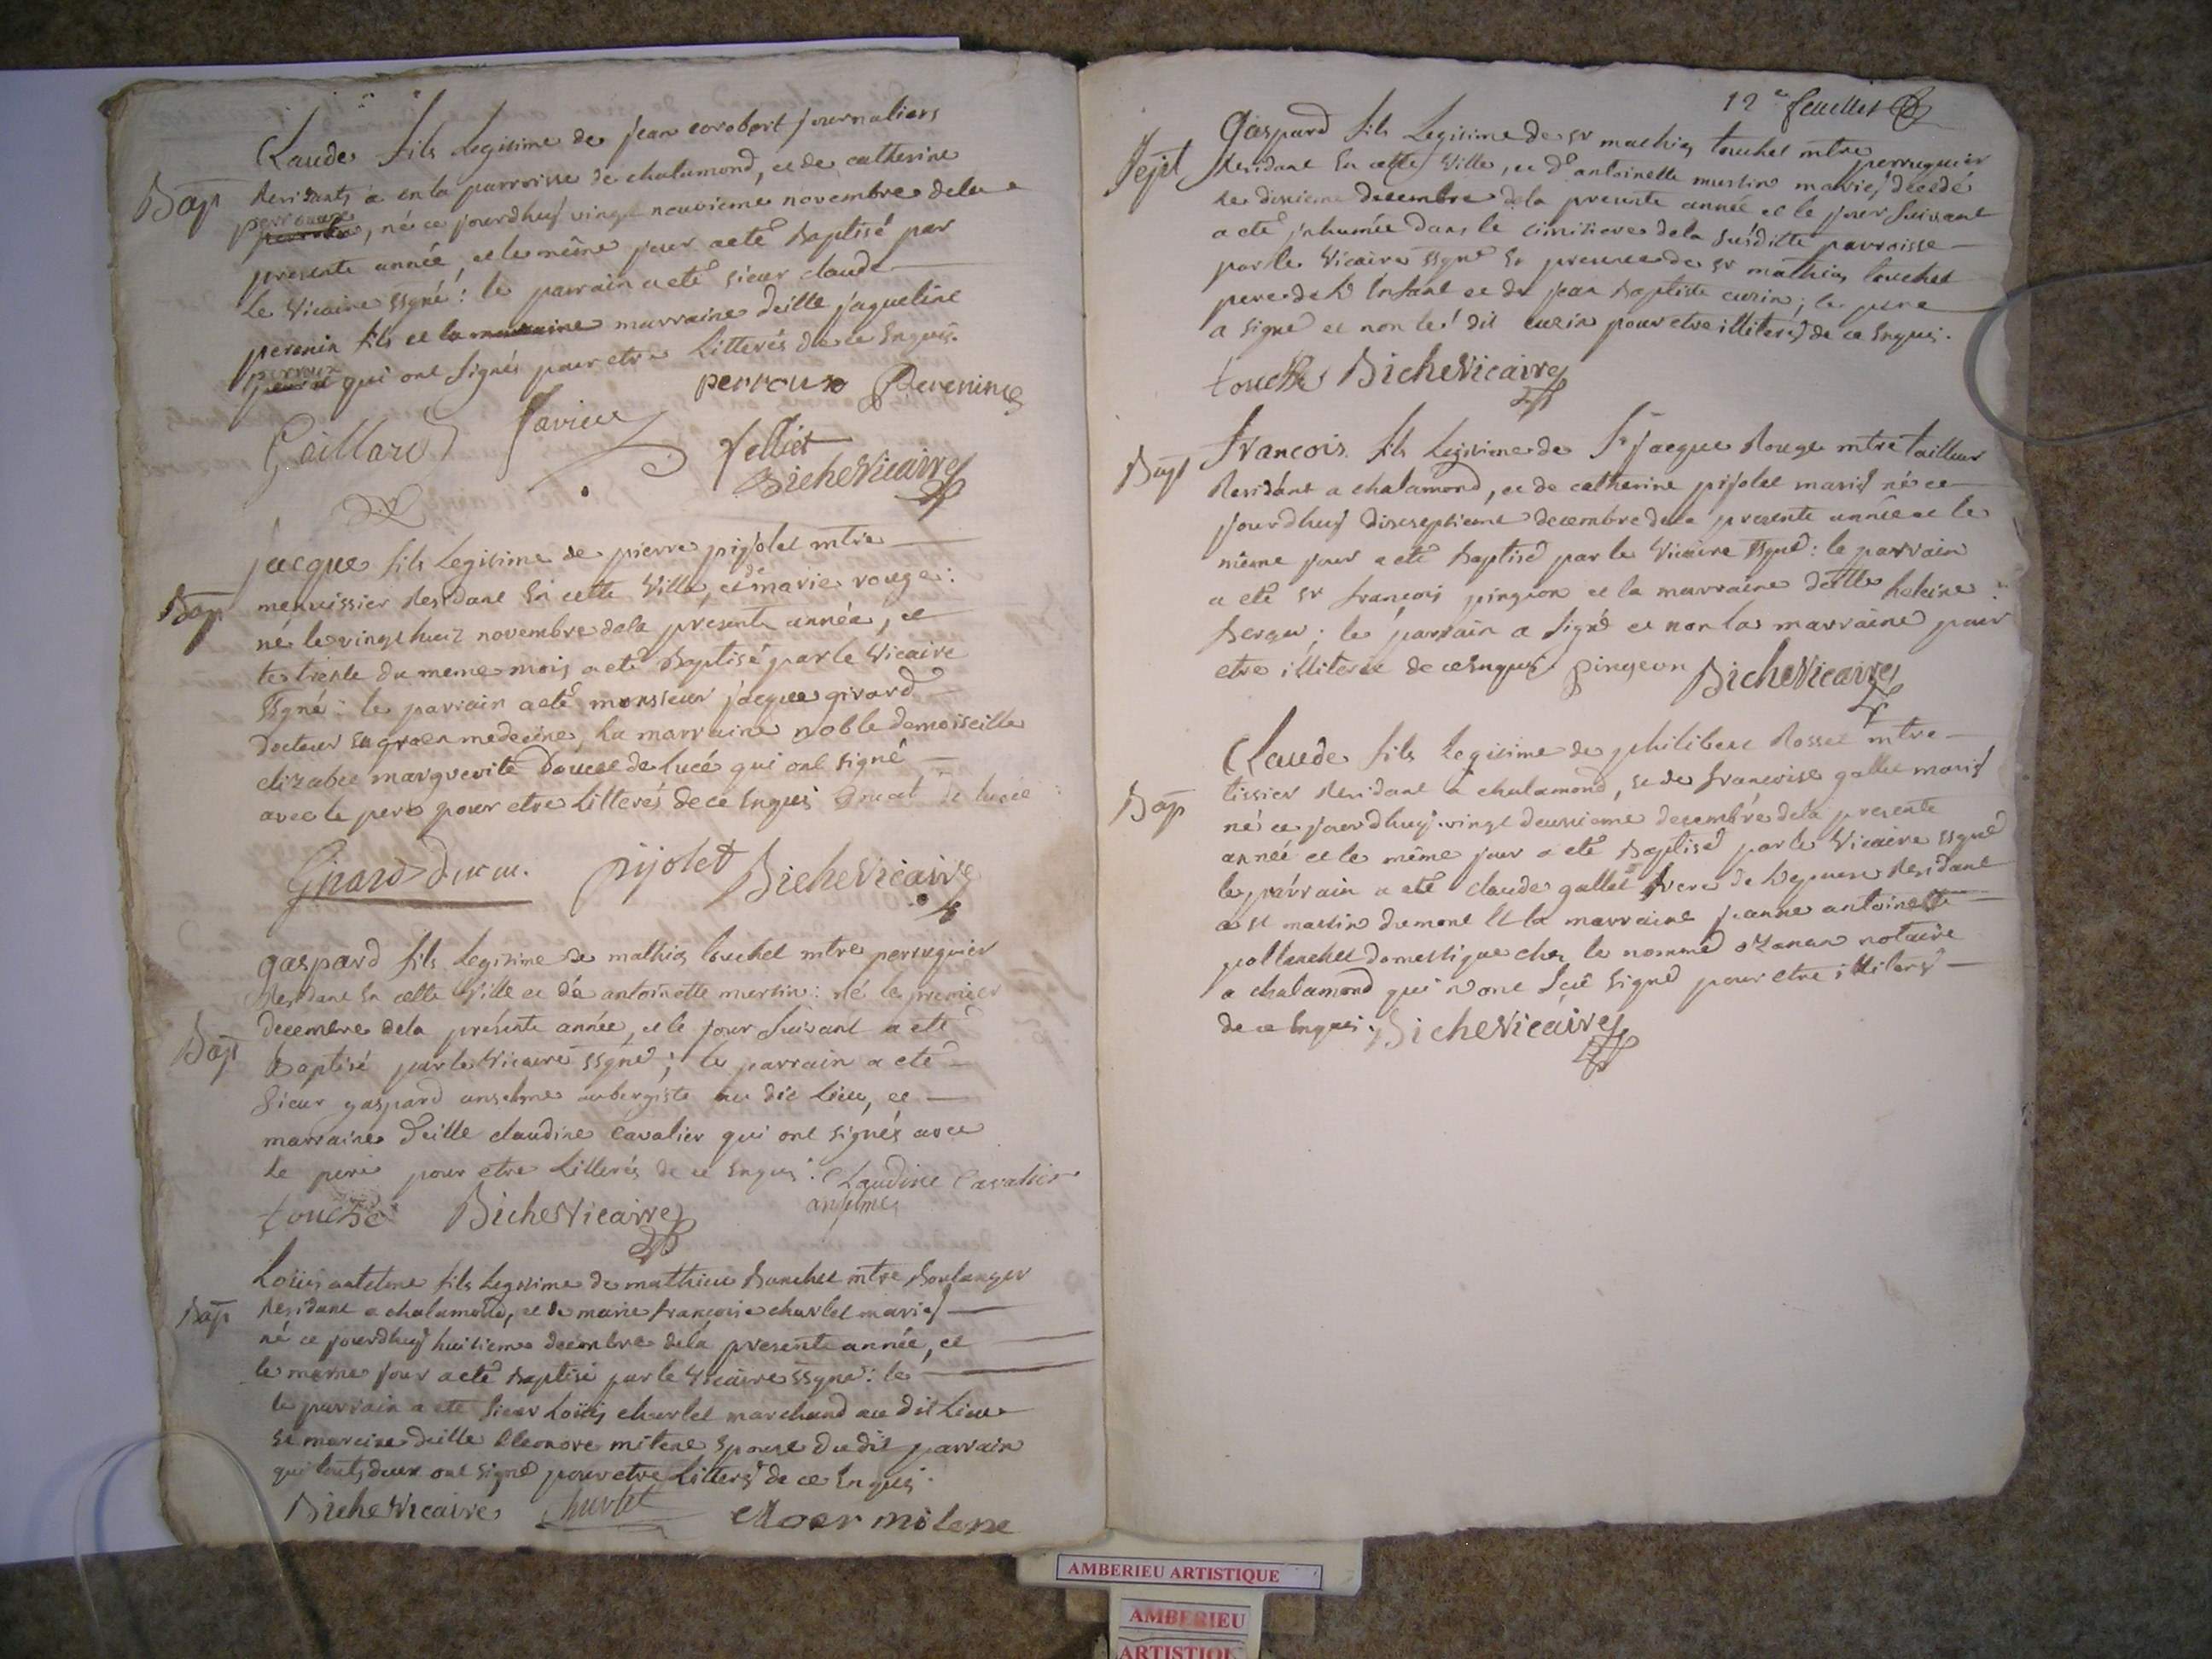 Claude fils Legitime de jean corobert journaliers
Bap
Residants a en la parroisse de chalamond, et de catherine
perroux, né ce jourdhuy vingt neuvieme novembre dela
presente année, et le même jour a eté Baptisé par
Le Vicaire ssgné: le parrain a eté sieur claude
perenin fils et la marraine deille jaqueline
perroux qui ont signés pour etre Litterés de ce Enquis.
perroux Perenin
Gaillard Savieu
Tellier
Biche Vicaire
jacque fils Legitime de pierre pijolet mtre
Bap
menuissier Residant En cette Ville, et de marie rouge:
né le vingt huit novembre dela présente année, et
le trente du meme mois a eté Baptisé par le Vicaire
ssgné: le parrain a eté monsieur jacque girard
docteur en medecine, La marraine noble demoiseille
elizabet marguerite Doucet de lucé qui ont signé
avec le pere pour etre Litterés de ce Enquis
Girard d.m.m. pijolet Biche Vicaire
gaspard fils Legitime de mathias touchet mtre perruquier
Residant En cette Ville et de antoinette murtin: né le premier
Bap
decembre dela présente année, et le jour suivant a eté
Baptisé par le Vicaire ssgné; le parrain a eté
Sieur gaspard anselme aubergiste au dit Lieu, et
marraine deille claudine Cavalier qui ont signés avec
Le pere pour etre Litterés de ce Enquis: Claudine Cavalier
touché Biche Vicaire anselme
Loüis antelme fils Legitime de mathieu Banchet mtre Boulanger
Bap
Residant a chalamond, et de marie françoise charlet mariés
né ce jourdhuy huitieme decembre dela presente année, et
le meme jour a eté Baptisé par le Vicaire ssgné: le
le parrain a eté Sieur Loüis charlet marchand au dit Lieu
et mareine deille Eleonore milene Epouse du dit parrain
qui touts deux ont signé pour etre Litterés de ce Enquis.
Biche Vicaire Charlet milene
12e feuillet
Gaspard fils Legitime de sr mathias touchet mtre perruquier
Sept
Residant En cette Ville, et de antoinette murtin mariés decedé
le dixieme decembre dela presente année et le jour suivant
a eté inhumée dans le cimitiere dela susditte parroisse
par le Vicaire ssgné En presence de sr mathias touchet
pere de L'Enfant et de jean Baptiste curin; le pere
a signé et non le dit curin pour etre illiterés de ce Enquis.
touché Biche Vicaire
François fils Legitime de Sr jacque Rouge mtre tailleur
Bapt
Residant a chalamond, et de catherine pijolet mariés né ce
jourdhuy dixseptieme decembre dela presente année et le
même jour a eté Baptisé par le Vicaire ssgné: le parrain
a eté sr françois pingeon et la marraine deille heleine
Berger; le parrain a signé et non la marraine pour
etre illiterée de ce Enquis pingeon Biche Vicaire
Claude fils Legitime de philibert Rosset mtre
tissier Residant a chalamond, et de françoise gallet mariés
Bap
né ce jourdhuy vingt deuxieme decembre dela presente
année et le même jour a eté Baptisé par le Vicaire ssgné
le parrain a eté claude gallet frere de L'epouse Residant
a st martin dumont et la marraine jeanne antoinette
pollanchet domestique chez le nommé ozanan notaire
a chalamond qui n'ont sçû signé pour etre illiterés
de ce Enquis. Biche Vicaire
AMBERIEU ARTISTIQUE
AMBERIEU